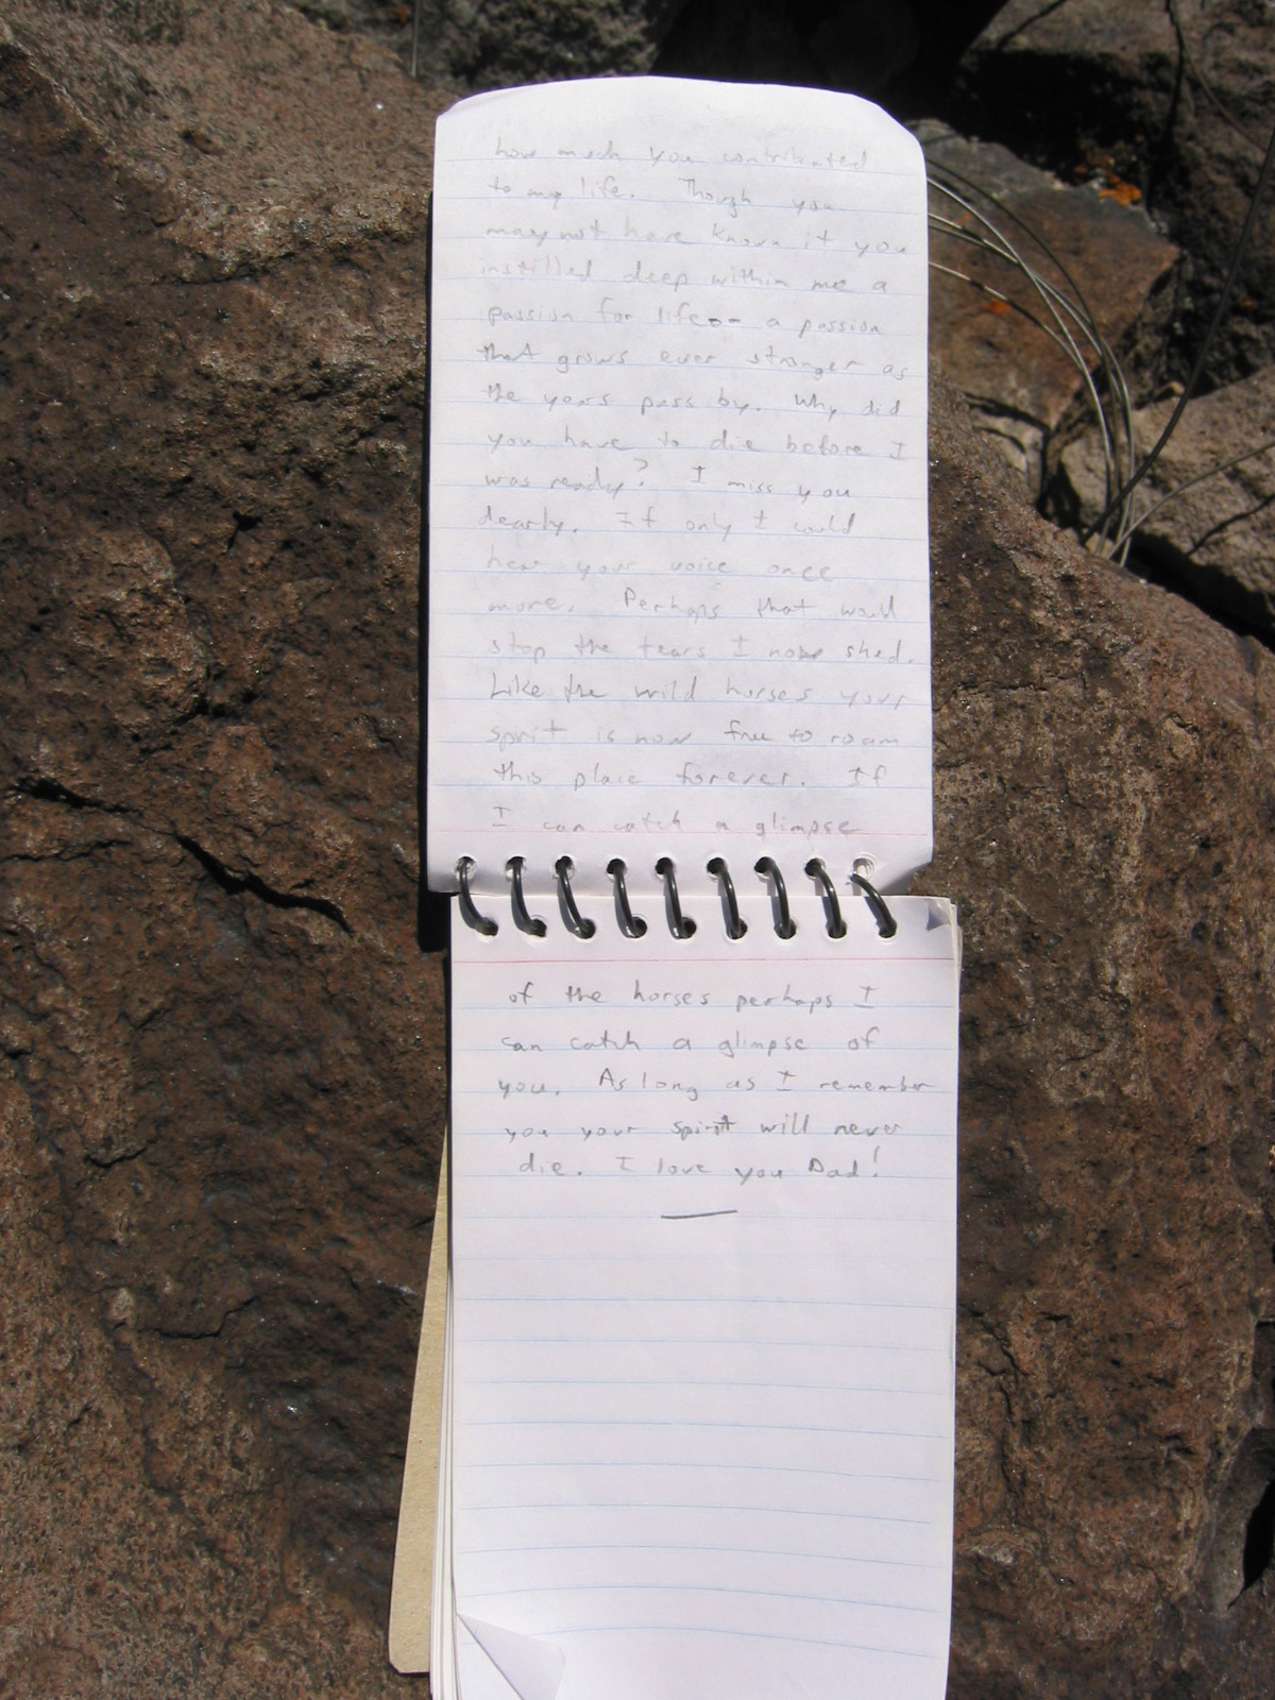 how much you contributed
to my life. Though you
may not have known it you
instilled deep within me a
passion for life - a passion
that grows ever stronger as
the years pass by. Why did
you have to die before I
was ready? I miss you
dearly. If only I could
hear your voice once
more. Perhaps that would
stop the tears I now shed.
Like the wild horses your
spirit is now free to roam
this place forever. If
I can catch a glimpse
of the horses perhaps I
can catch a glimpse of
you. As long as I remember
you your spirit will never
die. I love you Dad!